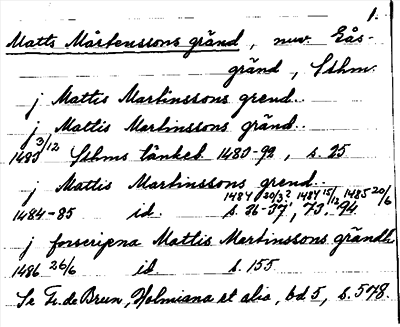 1.
Matts Mårtenssons gränd, nuv. Gås-
gränd, Sthm.
j Mattis Martinssons grend..
j Mattis Martinssons gränd..
1483 3/12 Sthms tänkeb. 1483-92, s. 25
j Mattis Martinssons grend..
1484 20/3? 1484 15/12 1485 20/6
1484-85 id. s. 36-37, 73, 94.
j forscripna Mattis Martinssons grändh
1486 26/6 id s. 155
Se Fr. de Brun, Holmiana et alia, bd 5, s. 578.